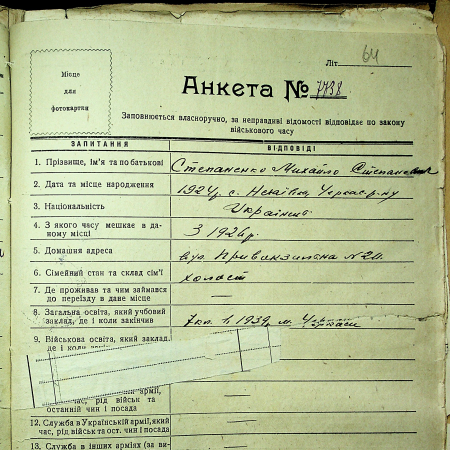 Літ. 64
Місце
для
фотокартки
Анкета № 7738
Заповнюється власноручно, за неправдиві відомості відповідає по закону
військового часу
ЗАПИТАННЯ ВІДПОВІДІ
1. Прізвище, ім'я та по батькові Степаненко Михайло Степанович
2. Дата та місце народження 1924р. с. Черкас. р-ну
3. Національність Українець
4. З якого часу мешкає в да-
ному місці З 1926р.
5. Домашня адреса вул. №20.
6. Сімейний стан та склад сім'ї холост
7. Де проживав та чим займався
до переїзду в дане місце —
8. Загальна освіта, який учбовий
заклад, де і коли закінчив 7кл. 1939р. м. Черкаси
9. Військова освіта, який заклад,
де і коли
армії,
час, рід військ та
останній чин і посада
12. Служба в Українській армії, який
час, рід військ та ост. чин і посада —
13. Служба в інших арміях (за ви-